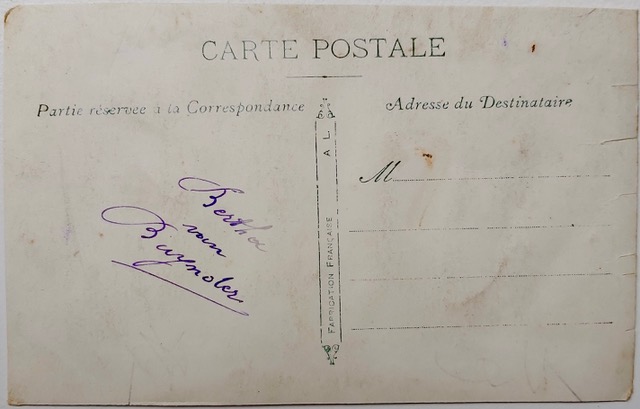 CARTE POSTALE
Partie réservée à la Correspondance
Adresse du Destinataire
A. L.
FABRICATION FRANÇAISE
M
Bertha
van